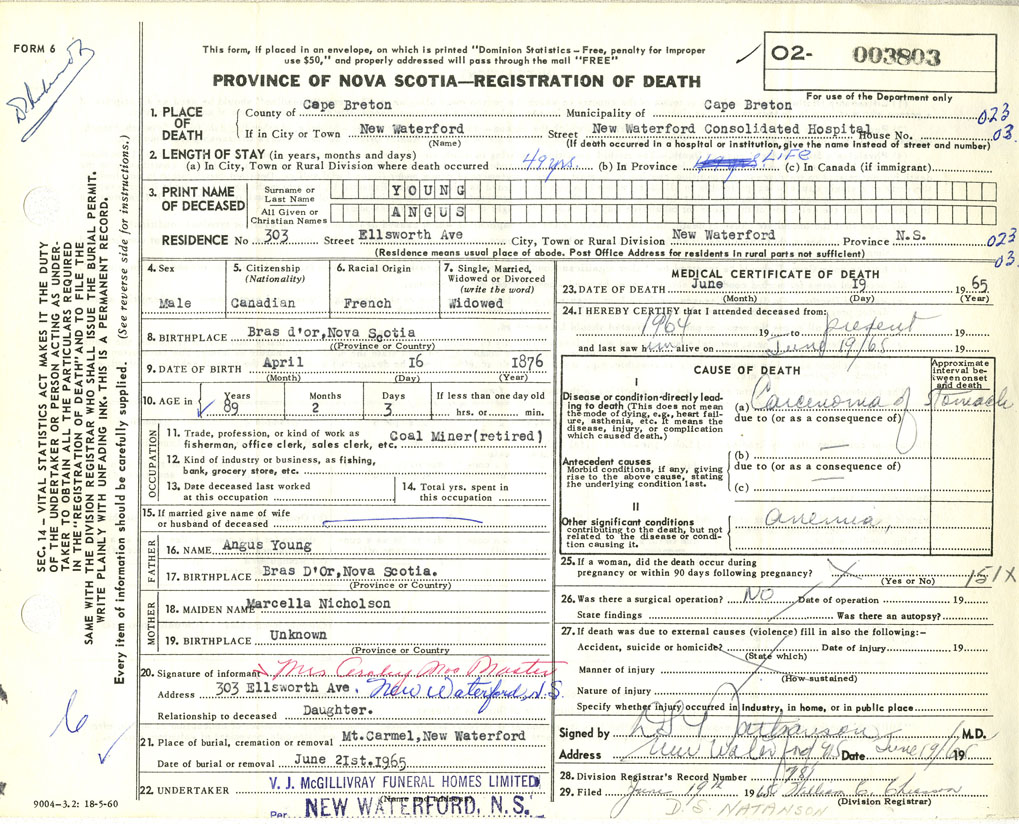 FORM 6
This form, if placed in an envelope, on which is printed "Dominion Statistics – Free, penalty for improper
use $50," and properly addressed will pass through the mail "FREE"
O2- 003803
For use of the Department only
PROVINCE OF NOVA SCOTIA—REGISTRATION OF DEATH
SEC. 14 – VITAL STATISTICS ACT MAKES IT THE DUTY
OF THE UNDERTAKER OR PERSON ACTING AS UNDER-
TAKER TO OBTAIN ALL THE PARTICULARS REQUIRED
IN THE "REGISTRATION OF DEATH" AND TO FILE THE
SAME WITH THE DIVISION REGISTRAR WHO SHALL ISSUE THE BURIAL PERMIT.
WRITE PLAINLY WITH UNFADING INK. THIS IS A PERMANENT RECORD.
Every item of information should be carefully supplied. (See reverse side for instructions.)
1. PLACE OF DEATH
County of Cape Breton Municipality of Cape Breton 023
If in City or Town New Waterford Street New Waterford Consolidated Hospital House No. 03.
(Name) (If death occurred in a hospital or institution, give the name instead of street and number)
2. LENGTH OF STAY (in years, months and days)
(a) In City, Town or Rural Division where death occurred 49 yrs. (b) In Province LIFE (c) In Canada (if immigrant)
3. PRINT NAME OF DECEASED
Surname or Last Name YOUNG
All Given or Christian Names ANGUS
RESIDENCE No 303 Street Ellsworth Ave City, Town or Rural Division New Waterford Province N.S. 023
(Residence means usual place of abode. Post Office Address for residents in rural parts not sufficient) 03.
4. Sex
Male
5. Citizenship
(Nationality)
Canadian
6. Racial Origin
French
7. Single, Married,
Widowed or Divorced
(write the word)
Widowed
8. BIRTHPLACE Bras d'or,Nova Scotia
(Province or Country)
9. DATE OF BIRTH April 16 1876
(Month) (Day) (Year)
10. AGE in Years 89 Months 2 Days 3 If less than one day old hrs. or min.
OCCUPATION
11. Trade, profession or kind of work as Coal Miner(retired)
fisherman, office clerk, sales clerk, etc.
12. Kind of industry or business, as fishing,
bank, grocery store, etc.
13. Date deceased last worked
at this occupation
14. Total yrs. spent in
this occupation
15. If married give name of wife
or husband of deceased
FATHER
16. NAME Angus Young
17. BIRTHPLACE Bras D'Or,Nova Scotia.
(Province or Country)
MOTHER
18. MAIDEN NAME Marcella Nicholson
19. BIRTHPLACE Unknown
(Province or Country)
20. Signature of informant Mrs
Address 303 Ellsworth Ave. New Waterford, N.S.
Relationship to deceased Daughter.
21. Place of burial, cremation or removal Mt.Carmel,New Waterford
Date of burial or removal June 21st.1965
22. UNDERTAKER V. J. McGILLIVRAY FUNERAL HOMES LIMITED
Per NEW WATERFORD, N.S.
6
9004-3.2: 18-5-60
MEDICAL CERTIFICATE OF DEATH
23. DATE OF DEATH June 19 1965
(Month) (Day) (Year)
24. I HEREBY CERTIFY that I attended deceased from:
1964 19 to present 19
and last saw him alive on June 19/65 19
CAUSE OF DEATH
Approximate
interval be-
tween onset
and death
I
Disease or condition-directly lead-
ing to death (This does not mean
the mode of dying, e.g., heart fail-
ure, asthenia, etc. It means the
disease, injury, or complication
which caused death.)
(a) Carcinoma of stomach
due to (or as a consequence of)
Antecedent causes
Morbid conditions, if any, giving
rise to the above cause, stating
the underlying condition last.
(b) —
due to (or as a consequence of)
(c) —
II
Other significant conditions
contributing to the death, but not
related to the disease or condi-
tion causing it.
anemia,
25. If a woman, did the death occur during
pregnancy or within 90 days following pregnancy?
(Yes or No) 151X
26. Was there a surgical operation? NO Date of operation 19
State findings Was there an autopsy?
27. If death was due to external causes (violence) fill in also the following:–
Accident, suicide or homicide? Date of injury 19
(State which)
Manner of injury
(How sustained)
Nature of injury
Specify whether injury occurred in industry, in home, or in public place
Signed by D S Nathanson M.D.
Address New Waterford NS Date June 19/65 19
28. Division Registrar's Record Number 781
29. Filed June 19th 1965 William C. Chiasson
(Division Registrar)
D. S. NATANSON